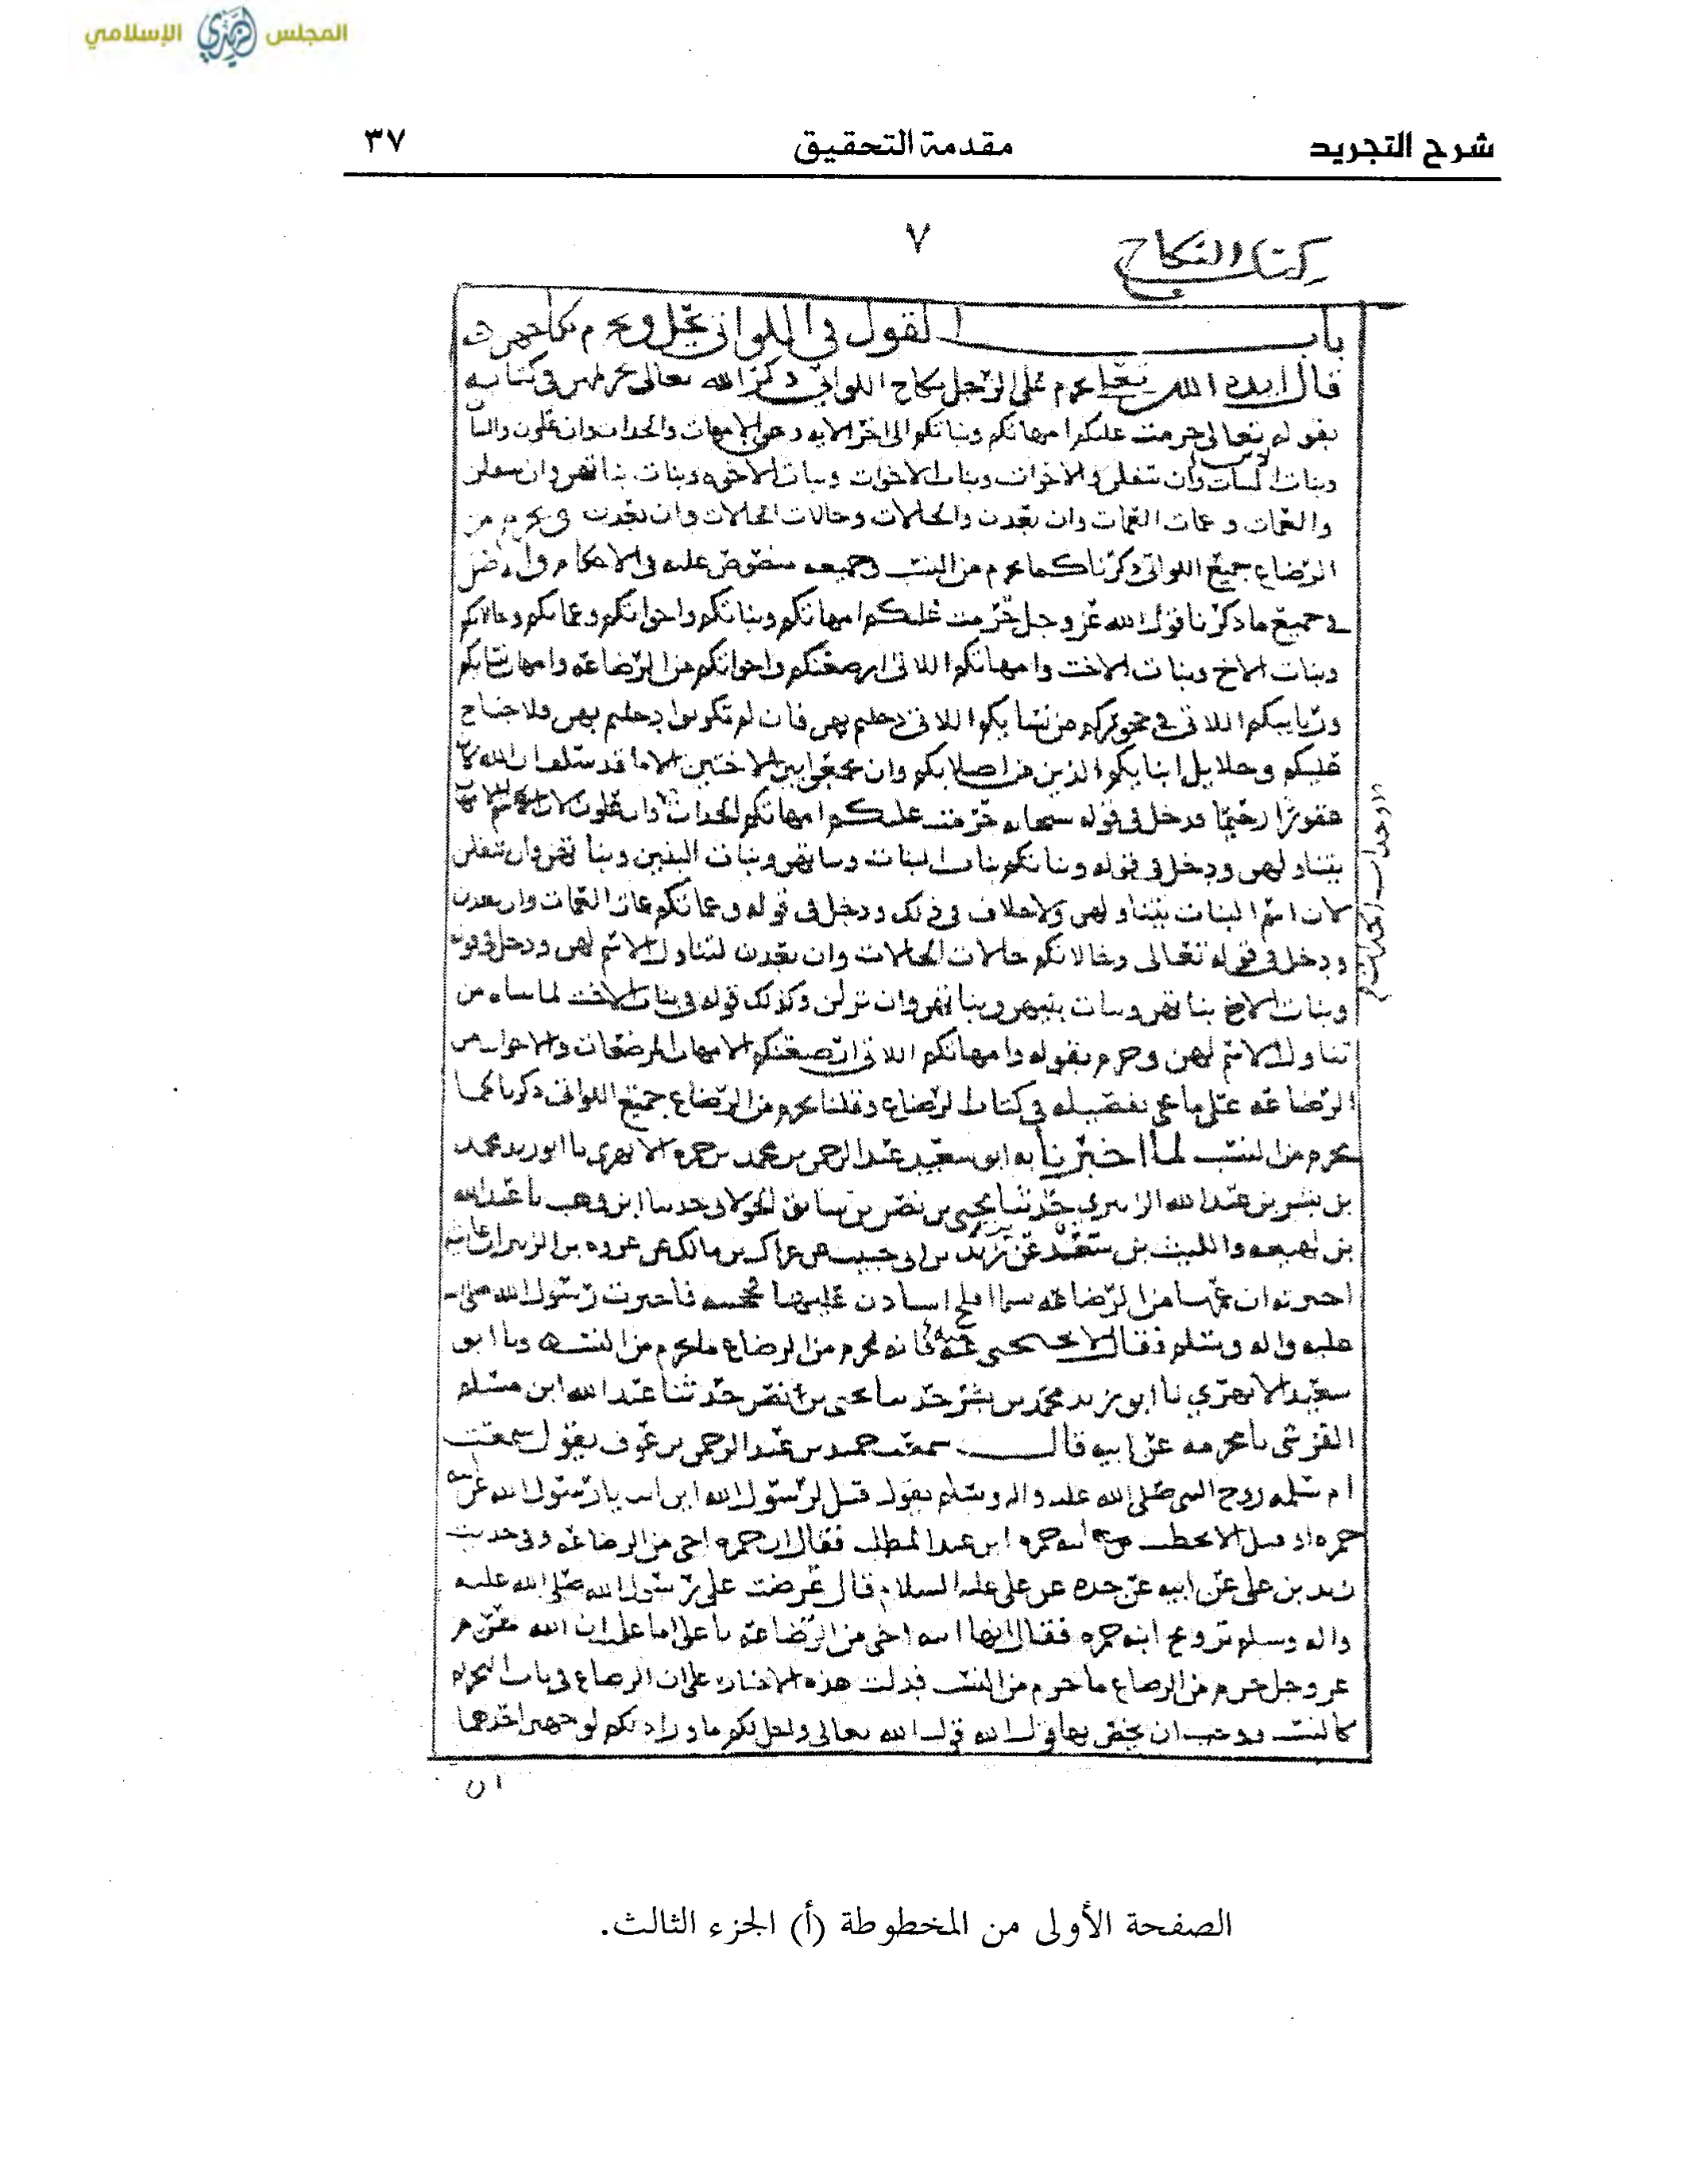 المجلس الزيدي الإسلامي
شرح التجريد
مقدمة التحقيق
٣٧
كتاب النكاح
٧
باب القول في اللواتي يحل ويحرم نكاحهن
قال ايده الله تعالى يحرم على الرجل نكاح اللواتي ذكر الله تعالى تحريمهن في كتابه
بقوله تعالى حرمت عليكم امهاتكم وبناتكم الى اخر الاية وهي الامهات والجدات وان علون والبنات
وبنات البنات وان سفلن والاخوات وبنات الاخوات وبنات الاخوه وبنات بناتهن وان سفلن
والعمات وعمات العمات وان بعدن والخالات وخالات الخالات وان بعدن ويحرم من
الرضاع جميع اللواتي ذكرنا كما يحرم من النسب وجميعه منصوص عليه في الاحكام والاصل
في جميع ما ذكرنا قول الله عز وجل حرمت عليكم امهاتكم وبناتكم واخواتكم وعماتكم وخالاتكم
وبنات الاخ وبنات الاخت وامهاتكم اللاتي ارضعنكم واخواتكم من الرضاعه وامهات نسايكم
وربايبكم اللاتي في حجوركم من نسايكم اللاتي دخلتم بهن فان لم تكونوا دخلتم بهن فلا جناح
عليكم وحلايل ابنايكم الذين من اصلابكم وان تجمعوا بين الاختين الا ما قد سلف ان الله كان
غفورا رحيما ودخل في قوله سبحانه حرمت عليكم امهاتكم الجدات وان علون لان اسم الامهات
يتناولهن ودخل في قوله وبناتكم بنات البنات وبناتهن وبنات البنين وبناتهن وان سفلن
لان اسم البنات يتناولهن ولا خلاف في ذلك ودخل في قوله وعماتكم عمات العمات وان بعدن
ودخل في قوله تعالى وخالاتكم خالات الخالات وان بعدن لتناول الاسم لهن ودخل في قوله
وبنات الاخ بناتهن وبنات بنيهن وبناتهن وان نزلن وكذلك قوله في بنات الاخت لما بيناه من
تناول الاسم لهن وحرم بقوله وامهاتكم اللاتي ارضعنكم الامهات المرضعات والاخوات من
الرضاعه على ما يجي تفصيله في كتاب الرضاع وقلنا يحرم من الرضاع جميع اللواتي ذكرنا كما
يحرم من النسب لما اخبرنا به ابو سعيد عبد الرحمن بن محمد بن حمزه الابهري نا ابو زيد محمد
بن بشر بن عبد الله الزبيري حدثنا يحيى بن نصر بن سابق الخولاني حدثنا ابن وهب نا عبد الله
بن لهيعه والليث بن سعد عن يزيد بن ابي حبيب عن عراك بن مالك عن عروه بن الزبير ان عايشه
اخبرته ان عمها من الرضاعه يسما افلح استاذن عليها فحجبته فاخبرت رسول الله صلى
عليه واله وسلم فقال لا تحتجبي منه فانه يحرم من الرضاع ما يحرم من النسب ونا ابو
سعيد الابهري نا ابو زيد محمد بن بشر حدثنا يحيى بن نصر حدثنا عبد الله ابن مسلم
القرشي نا مخرمه عن ابيه قال سمعت حميد بن عبد الرحمن بن عوف يقول سمعت
ام سلمه زوج النبي صلى الله عليه واله وسلم يقول قيل لرسول الله اين انت يا رسول الله عن ابنة
حمزه او قيل الا تخطب ابنة حمزه ابن عبد المطلب فقال ان حمزه اخي من الرضاعه وفي حديث
زيد بن علي عن ابيه عن جده عن علي عليه السلام قال عرضت على رسول الله صلى الله عليه
واله وسلم تزويج ابنة حمزه فقال انها ابنة اخي من الرضاعة يا علي اما علمت ان الله
عز وجل حرم من الرضاع ما حرم من النسب فدلت هذه الاخبار على ان الرضاع في باب التحريم
كالنسب ووجب ان يخص بها قول الله تعالى واحل لكم ما وراء ذلكم لوجهين احدهما
ان
الصفحة الأولى من المخطوطة (أ) الجزء الثالث.